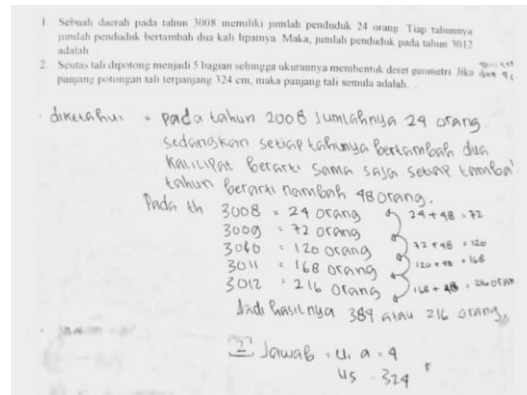 1. Sebuah daerah pada tahun 3008 memiliki jumlah penduduk 24 orang. Tiap tahunnya
jumlah penduduk bertambah dua kali lipatnya. Maka, jumlah penduduk pada tahun 3012
adalah
2. Seutas tali dipotong menjadi 5 bagian sehingga ukurannya membentuk deret geometri. Jika
panjang potongan tali terpanjang 324 cm, maka panjang tali semula adalah...
diketahui = pada tahun 2008 Jumlahnya 24 orang.
sedangkan setiap tahunya bertambah dua
kalilipat berarti sama saja setiap tamba
tahun berarti nambah 48 orang.
Pada th 3008 = 24 orang 24 + 48 = 72
3009 = 72 orang
3010 = 120 orang 72 + 48 = 120
3011 = 168 orang 120 + 48 = 168
3012 = 216 orang 168 + 48 = 216 oran
Jadi hasilnya 384 atau 216 orang
2 Jawab = U1 a = 4
U5 = 324